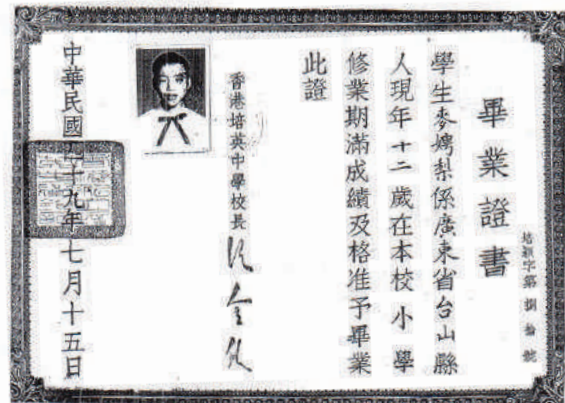 字第捌拾號
畢業證書
學生麥娉梨係廣東省台山縣
人現年十二歲在本校小學
修業期滿成績及格准予畢業
此證
香港培英中學校長
中華民國十九年七月十五日